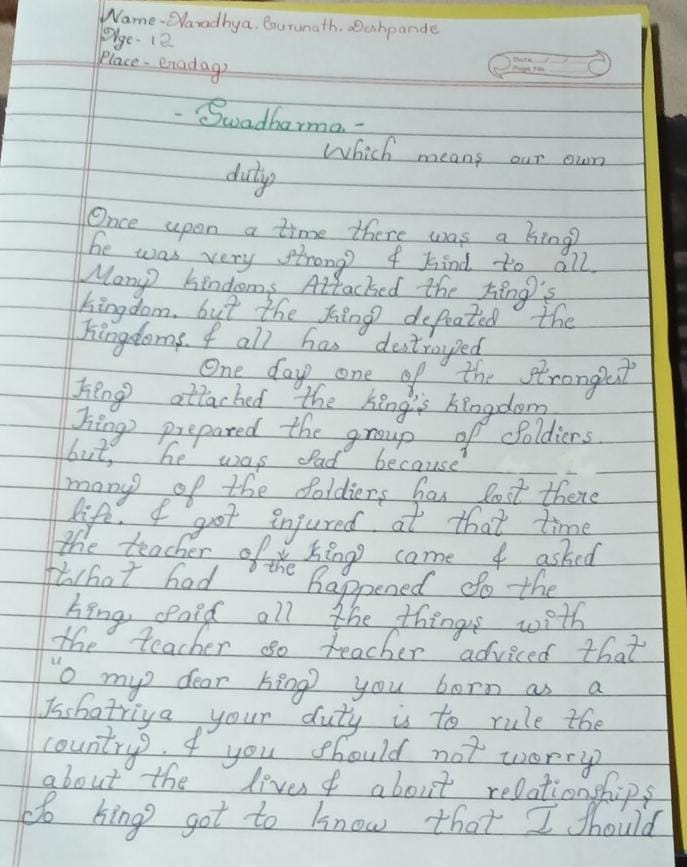 Name - Naradhya. Gurunath. Deshpande
Age - 12
Place - eradag
Date
Page No.
- Swadharma -
Which means our own
duty
Once upon a time there was a king
he was very strong & kind to all.
Many kindoms Attacked the king's
kingdom. but the king defeated the
kingdoms. & all has destroyed
One day one of the strongest
king attached the king's kingdom.
King prepared the group of soldiers.
but, he was sad because
many of the soldiers has lost there
life. & got injured. at that time
the teacher of the king came & asked
what had happened So the
king said all the things with
the teacher so teacher adviced that
"O my dear king you born as a
Kshatriya your duty is to rule the
country. & you should not worry
about the lives & about relationships
So king got to know that I should